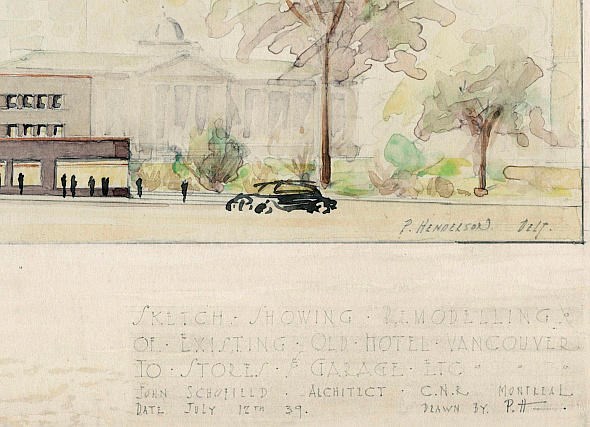 P. HENDERSON. DELT.
SKETCH · SHOWING · REMODELLING
OF · EXISTING · OLD · HOTEL · VANCOUVER
TO · STORES · & GARAGE · ETC
JOHN SCHOFIELD · ARCHITECT · C.N.R. MONTREAL
DATE JULY 12TH 39. DRAWN BY. P.H